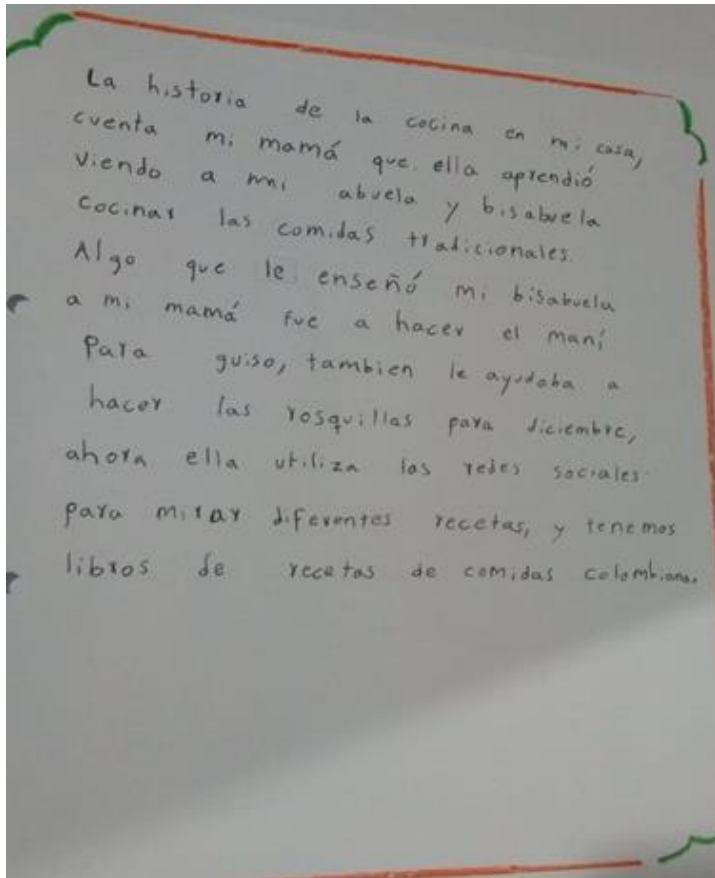 La historia de la cocina en mi casa,
cuenta mi mamá que ella aprendió
viendo a mi abuela y bisabuela
cocinar las comidas tradicionales.
Algo que le enseñó mi bisabuela
a mi mamá fue a hacer el maní
Para guiso, tambien le ayudaba a
hacer las rosquillas para diciembre,
ahora ella utiliza las redes sociales
para mirar diferentes recetas, y tenemos
libros de recetas de comidas colombiana.